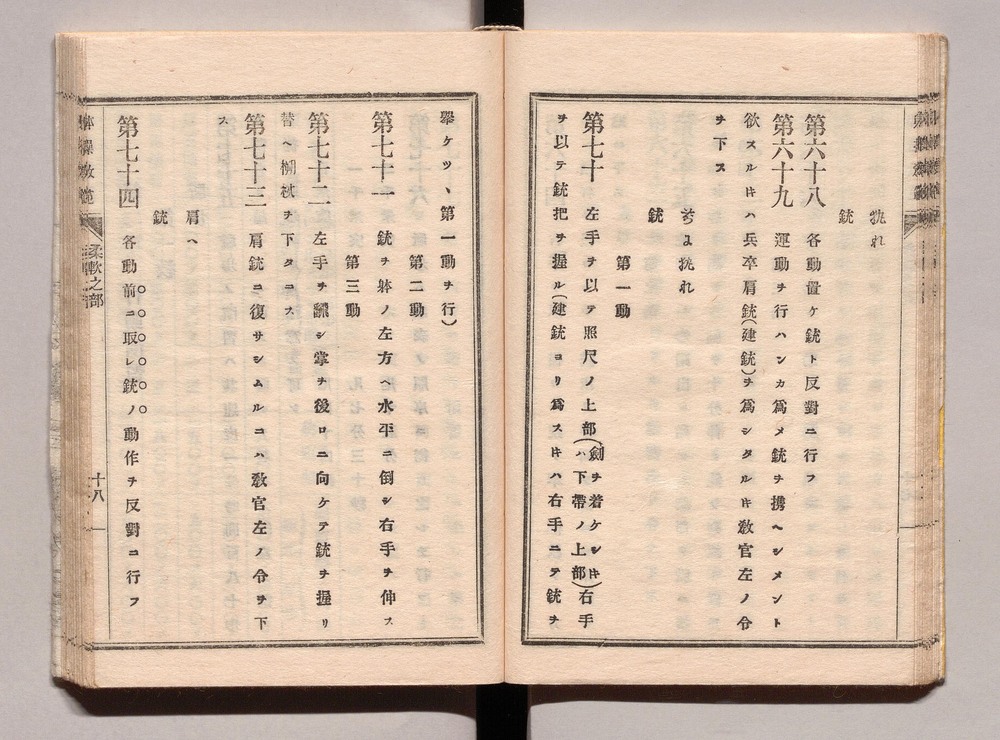 執れ
銃
第六十八 各動置ケ銃ト反對ニ行フ
第六十九 運動ヲ行ハンカ爲メ銃ヲ携ヘシメント
欲スルキハ兵卒肩銃(建銃)ヲ爲シタルキ敎官左ノ令
ヲ下ス
銃
第一動
第七十 左手ヲ以テ照尺ノ上部(劍ヲ着ケシキハ下帶ノ上部)右手
ヲ以テ銃把ヲ握ル(建銃ヨリ爲スキハ右手ニテ銃ヲ
擧ケツヽ第一動ヲ行)
第二動
第七十一 銃ヲ躰ノ左方ヘ水平ニ倒シ右手ヲ伸ス
第三動
第七十二 左手ヲ飜シ掌ヲ後ロニ向ケテ銃ヲ握リ
替ヘ棚杖ヲ下タニス
第七十三 肩銃ニ復サシムルニハ敎官左ノ令ヲ下
ス
肩へ
銃
第七十四 各動前ニ取レ銃ノ動作ヲ反對ニ行フ
○○○○○○
柔軟之部
十八